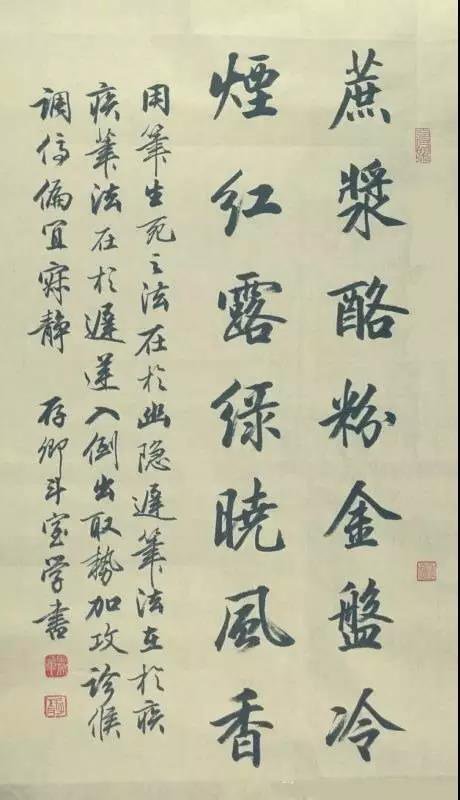 蔗漿酪粉金盤冷
煙紅露綠曉風香
用筆生死之法在於幽隐遲筆法在於疾
疾筆法在於遲逆入倒出取勢加攻診候
調停偏宜寂靜 存卿斗室学書